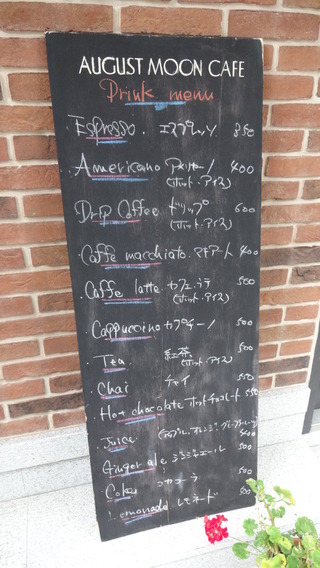 AUGUST MOON CAFE
Drink menu
・Espresso. エスプレッソ 350
・Americano アメリカーノ 400
(ホット・アイス)
・Drip Coffee ドリップ 600
(ホット・アイス)
・Caffe macchiato. マキアート 400
・Caffe latte カフェラテ 500
(ホット・アイス)
・Cappuccino カプチーノ 500
・Tea 紅茶 500
(ホット・アイス)
・Chai チャイ 550
・Hot chocolate ホットチョコレート 550
・Juice (アップル、オレンジ、グレープフルーツ)
400
・Ginger ale ジンジャエール 500
・Coke コカコーラ 500
・Lemonade レモネード